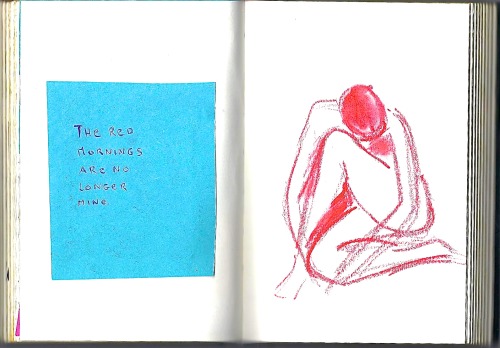 THE RED
MORNINGS
ARE NO
LONGER
MINE